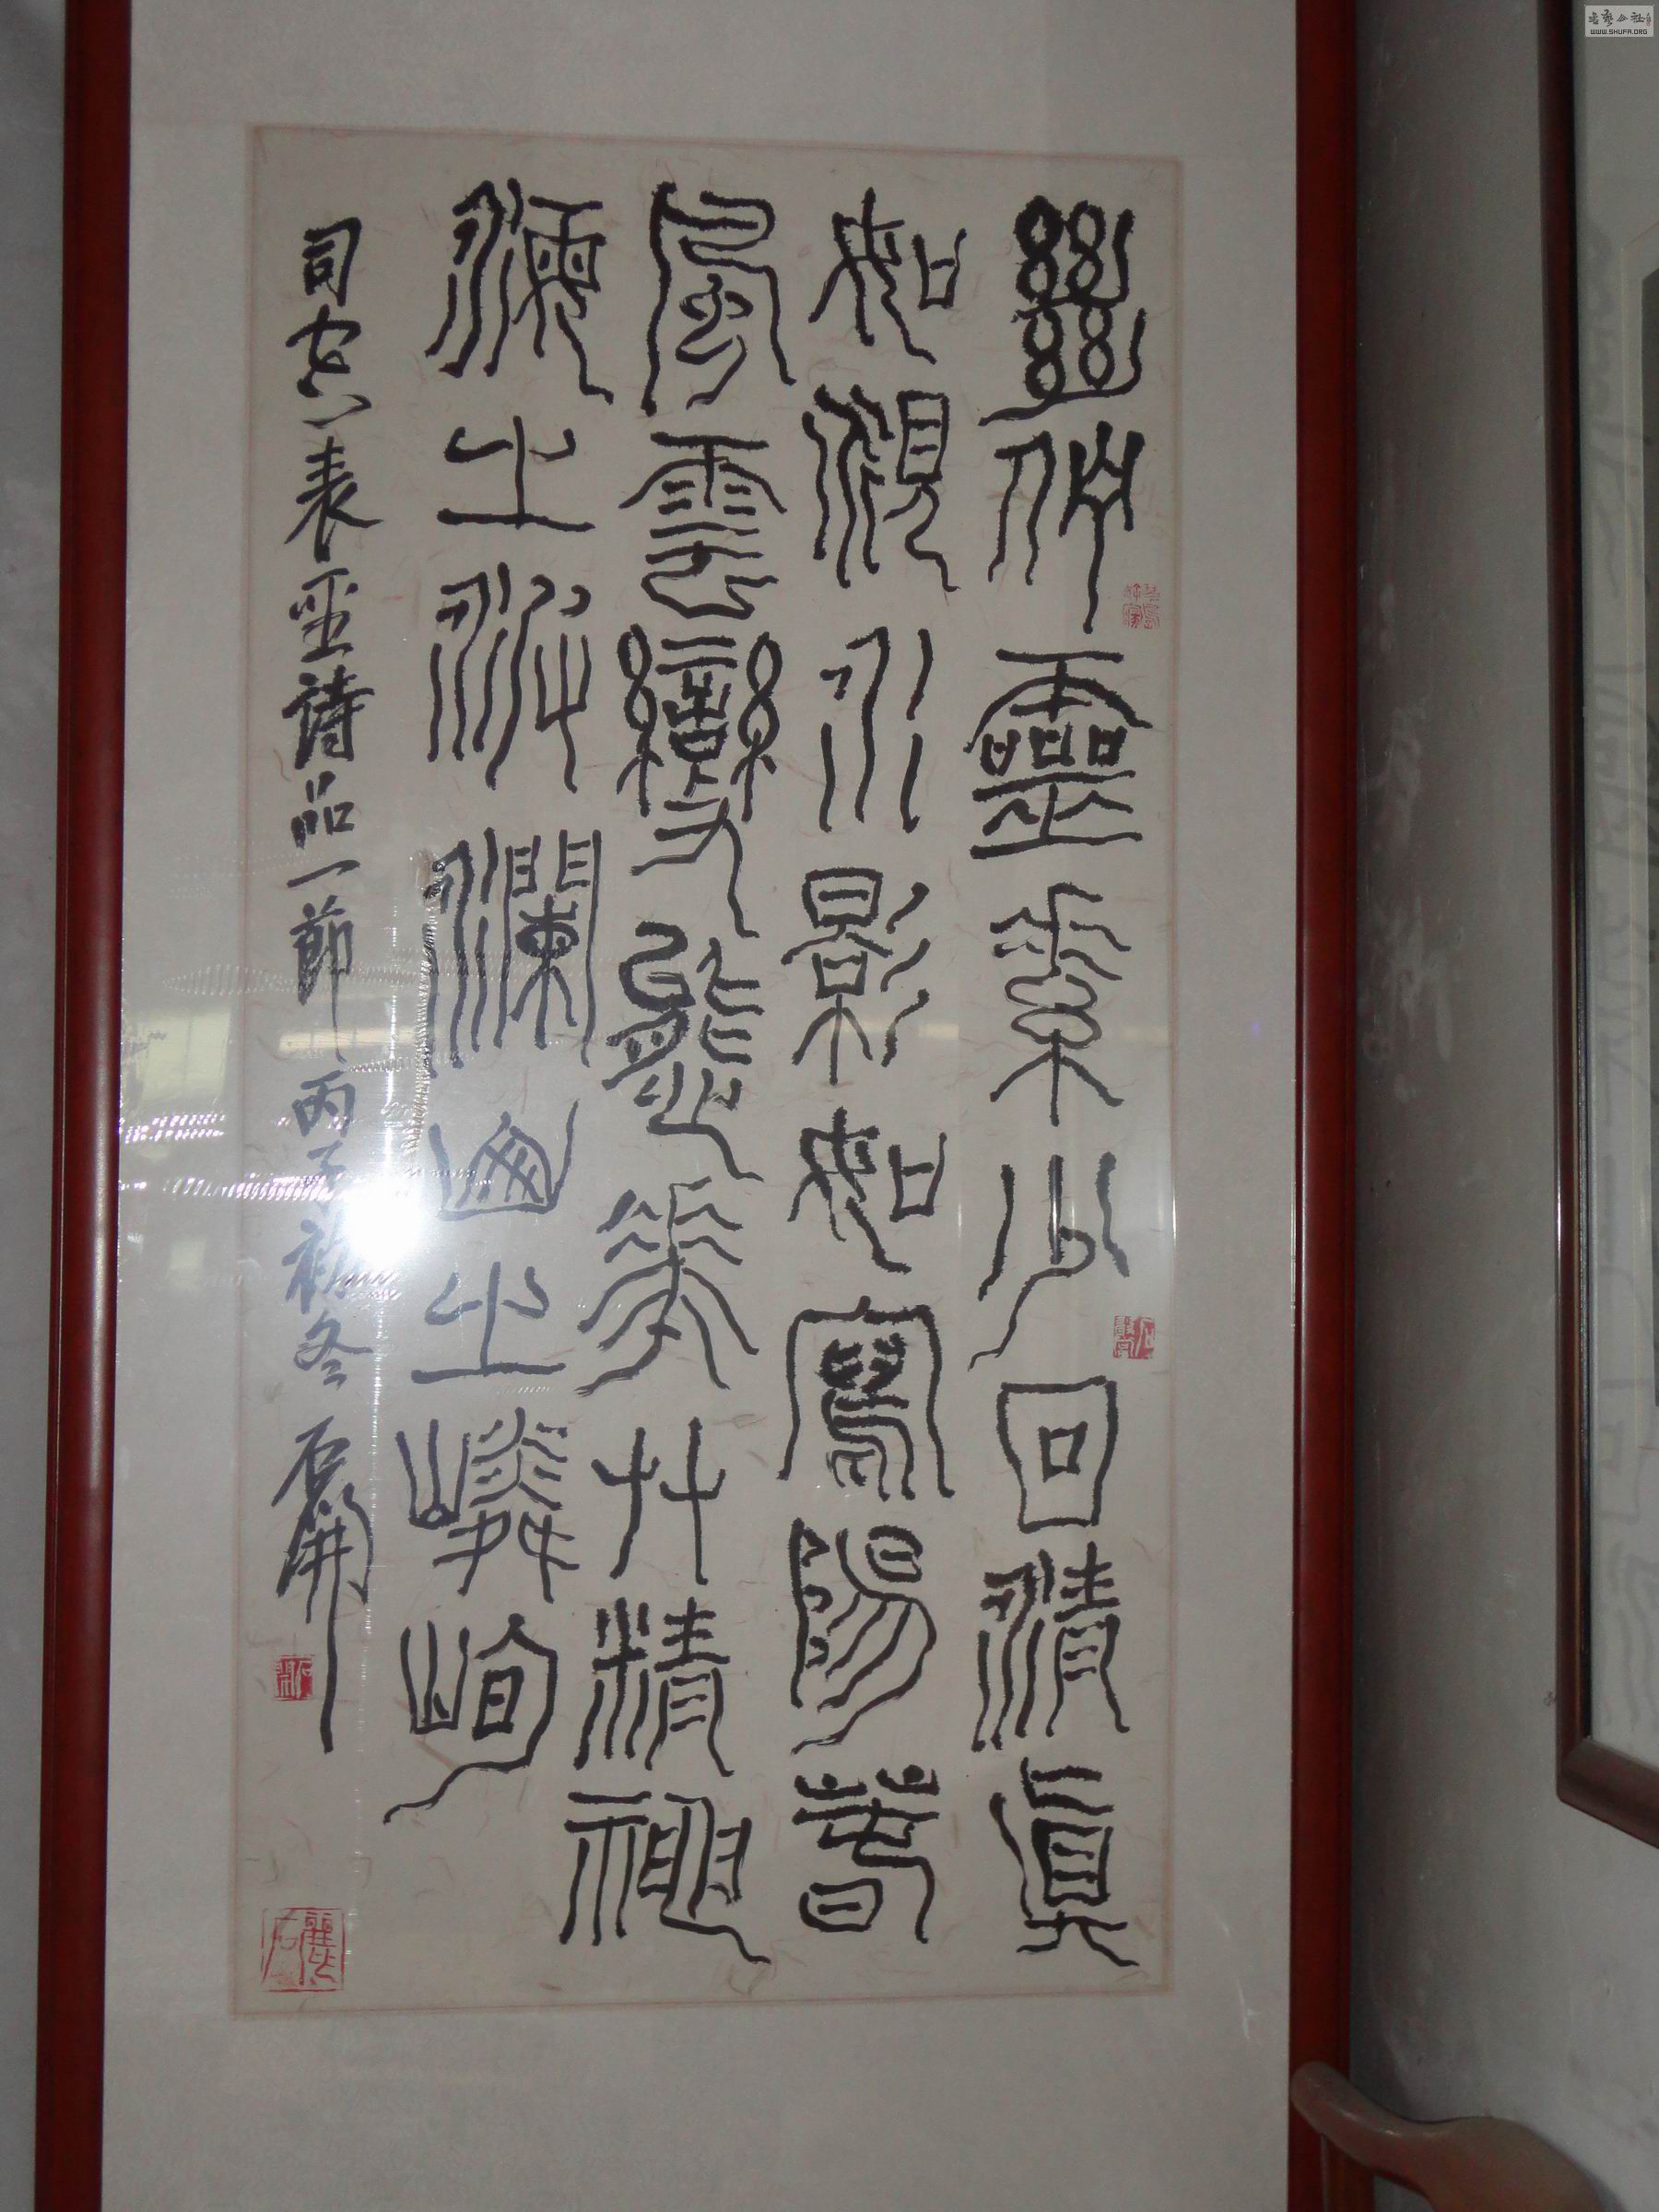 絕佇靈素少回清真
如覓水影如寫陽春
風雲變態華艸精神
海之波瀾山之嶙峋
司空表聖詩品一節 丙子初冬 石開
石開
書藝公社
WWW.SHUFA.ORG